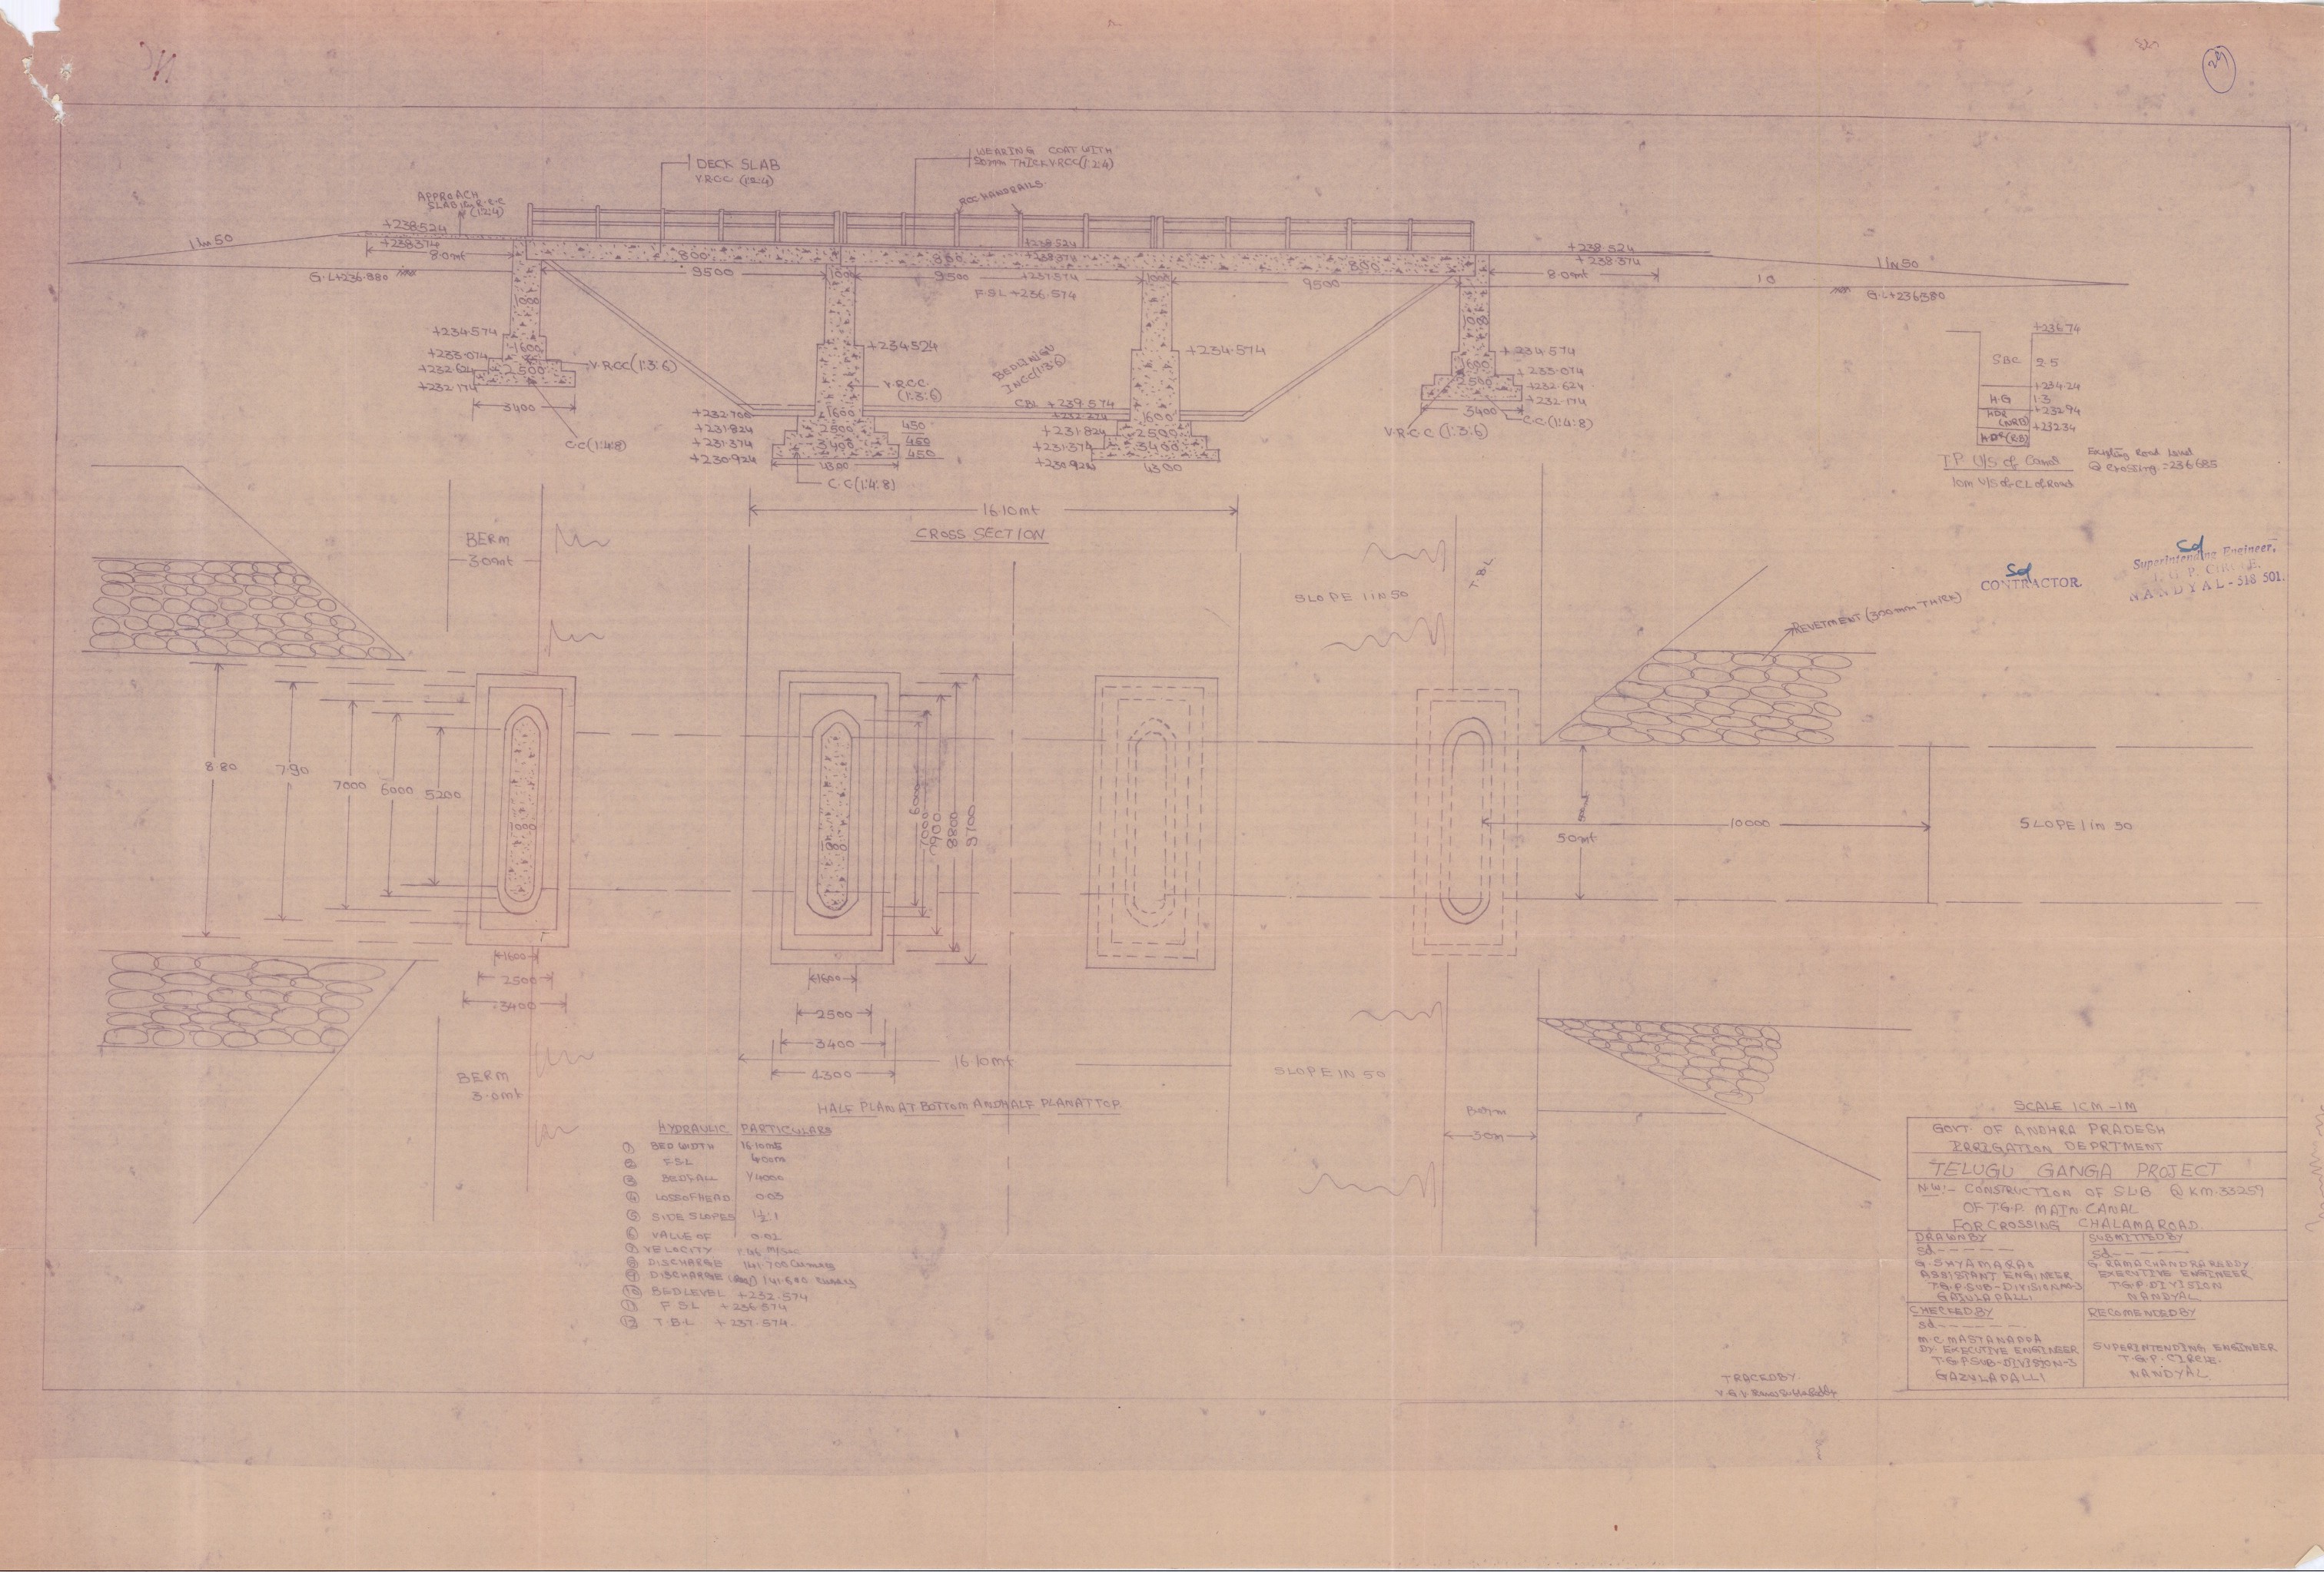 29
DECK SLAB
V.R.C.C (1:2:4)
WEARING COAT WITH
THICK V.R.CC(1:2:4)
RCC HANDRAILS
APPROACH
SLAB
(1:2:4)
+238.524
+238.374
8.0mt
1 IN 50
G.L+236.980
800
9500
1000
+238.524
+238.374
+237.574
800
9500
F.S.L +236.574
1000
800
9500
+238.524
+238.374
8.0mt
10
1 IN 50
G.L+236.980
1000
+234.574
+233.074
+232.624
+232.174
1600
2500
3400
V.R.CC(1:3:6)
C.C(1:4:8)
+234.524
V.R.C.C
(1:3:6)
BEDLINING
IN CC(1:3:6)
CBL +239.574
+232.700
+231.824
+231.374
+230.924
1600
2500
3400
4300
450
450
450
C.C(1:4:8)
+234.574
+231.824
+231.374
+230.924
1600
2500
3400
4300
1000
+234.574
+233.074
+232.624
+232.174
2500
3400
V.R.C.C (1:3:6)
C.C(1:4:8)
+236.74
SBC 2.5
+234.24
H.G 1.3
+232.94
HDR
(NRB)
+232.34
HDR(RB)
T.P U/S of Canal
10m U/S of CL of Road
Existing Road Level
@ Crossing = 236.685
16.10mt
CROSS SECTION
BERM
3.0mt
SLOPE 1 IN 50
T.B.L
Sd
CONTRACTOR.
Sd
Superintending Engineer,
T.G.P. CIRCLE,
NANDYAL-518 501.
REVETMENT (300mm THICK)
8.80
7.90
7000
6000
5200
1000
1000
6000
7000
7900
8800
9700
5.0mt
10000
SLOPE 1 IN 50
1600
2500
3400
1600
2500
3400
4300
16.10mt
BERM
3.0mt
SLOPE IN 50
Berm
3.0m
HALF PLAN AT BOTTOM AND HALF PLAN AT TOP
HYDRAULIC PARTICULARS
1 BED WIDTH 16.10mts
2 F.S.L 4.00m
3 BEDFALL 1/4000
4 LOSS OF HEAD 0.03
5 SIDE SLOPES 1½:1
6 VALUE OF 0.02
7 VELOCITY 1.46 m/sec
8 DISCHARGE 141.700 Cumecs
9 DISCHARGE 141.600 cumecs
10 BED LEVEL +232.574
11 F.S.L +236.574
12 T.B.L +237.574
SCALE 1CM-1M
GOVT. OF ANDHRA PRADESH
IRRIGATION DEPRTMENT
TELUGU GANGA PROJECT
N.W:- CONSTRUCTION OF SLB @ KM.33.259
OF T.G.P. MAIN CANAL
FOR CROSSING CHALAMA ROAD.
DRAWN BY
Sd------
G. SHYAMA RAO
ASSISTANT ENGINEER
T.G.P. SUB-DIVISION NO-3
GAJULAPALLI
SUBMITTED BY
Sd------
G. RAMACHANDRA REDDY
EXECUTIVE ENGINEER
T.G.P. DIVISION
NANDYAL
CHECKED BY
Sd------
M.C MASTANAPPA
DY. EXECUTIVE ENGINEER
T.G.P SUB-DIVISION-3
GAZULAPALLI
RECOMENDED BY
SUPERINTENDING ENGINEER
T.G.P. CIRCLE.
NANDYAL
TRACED BY